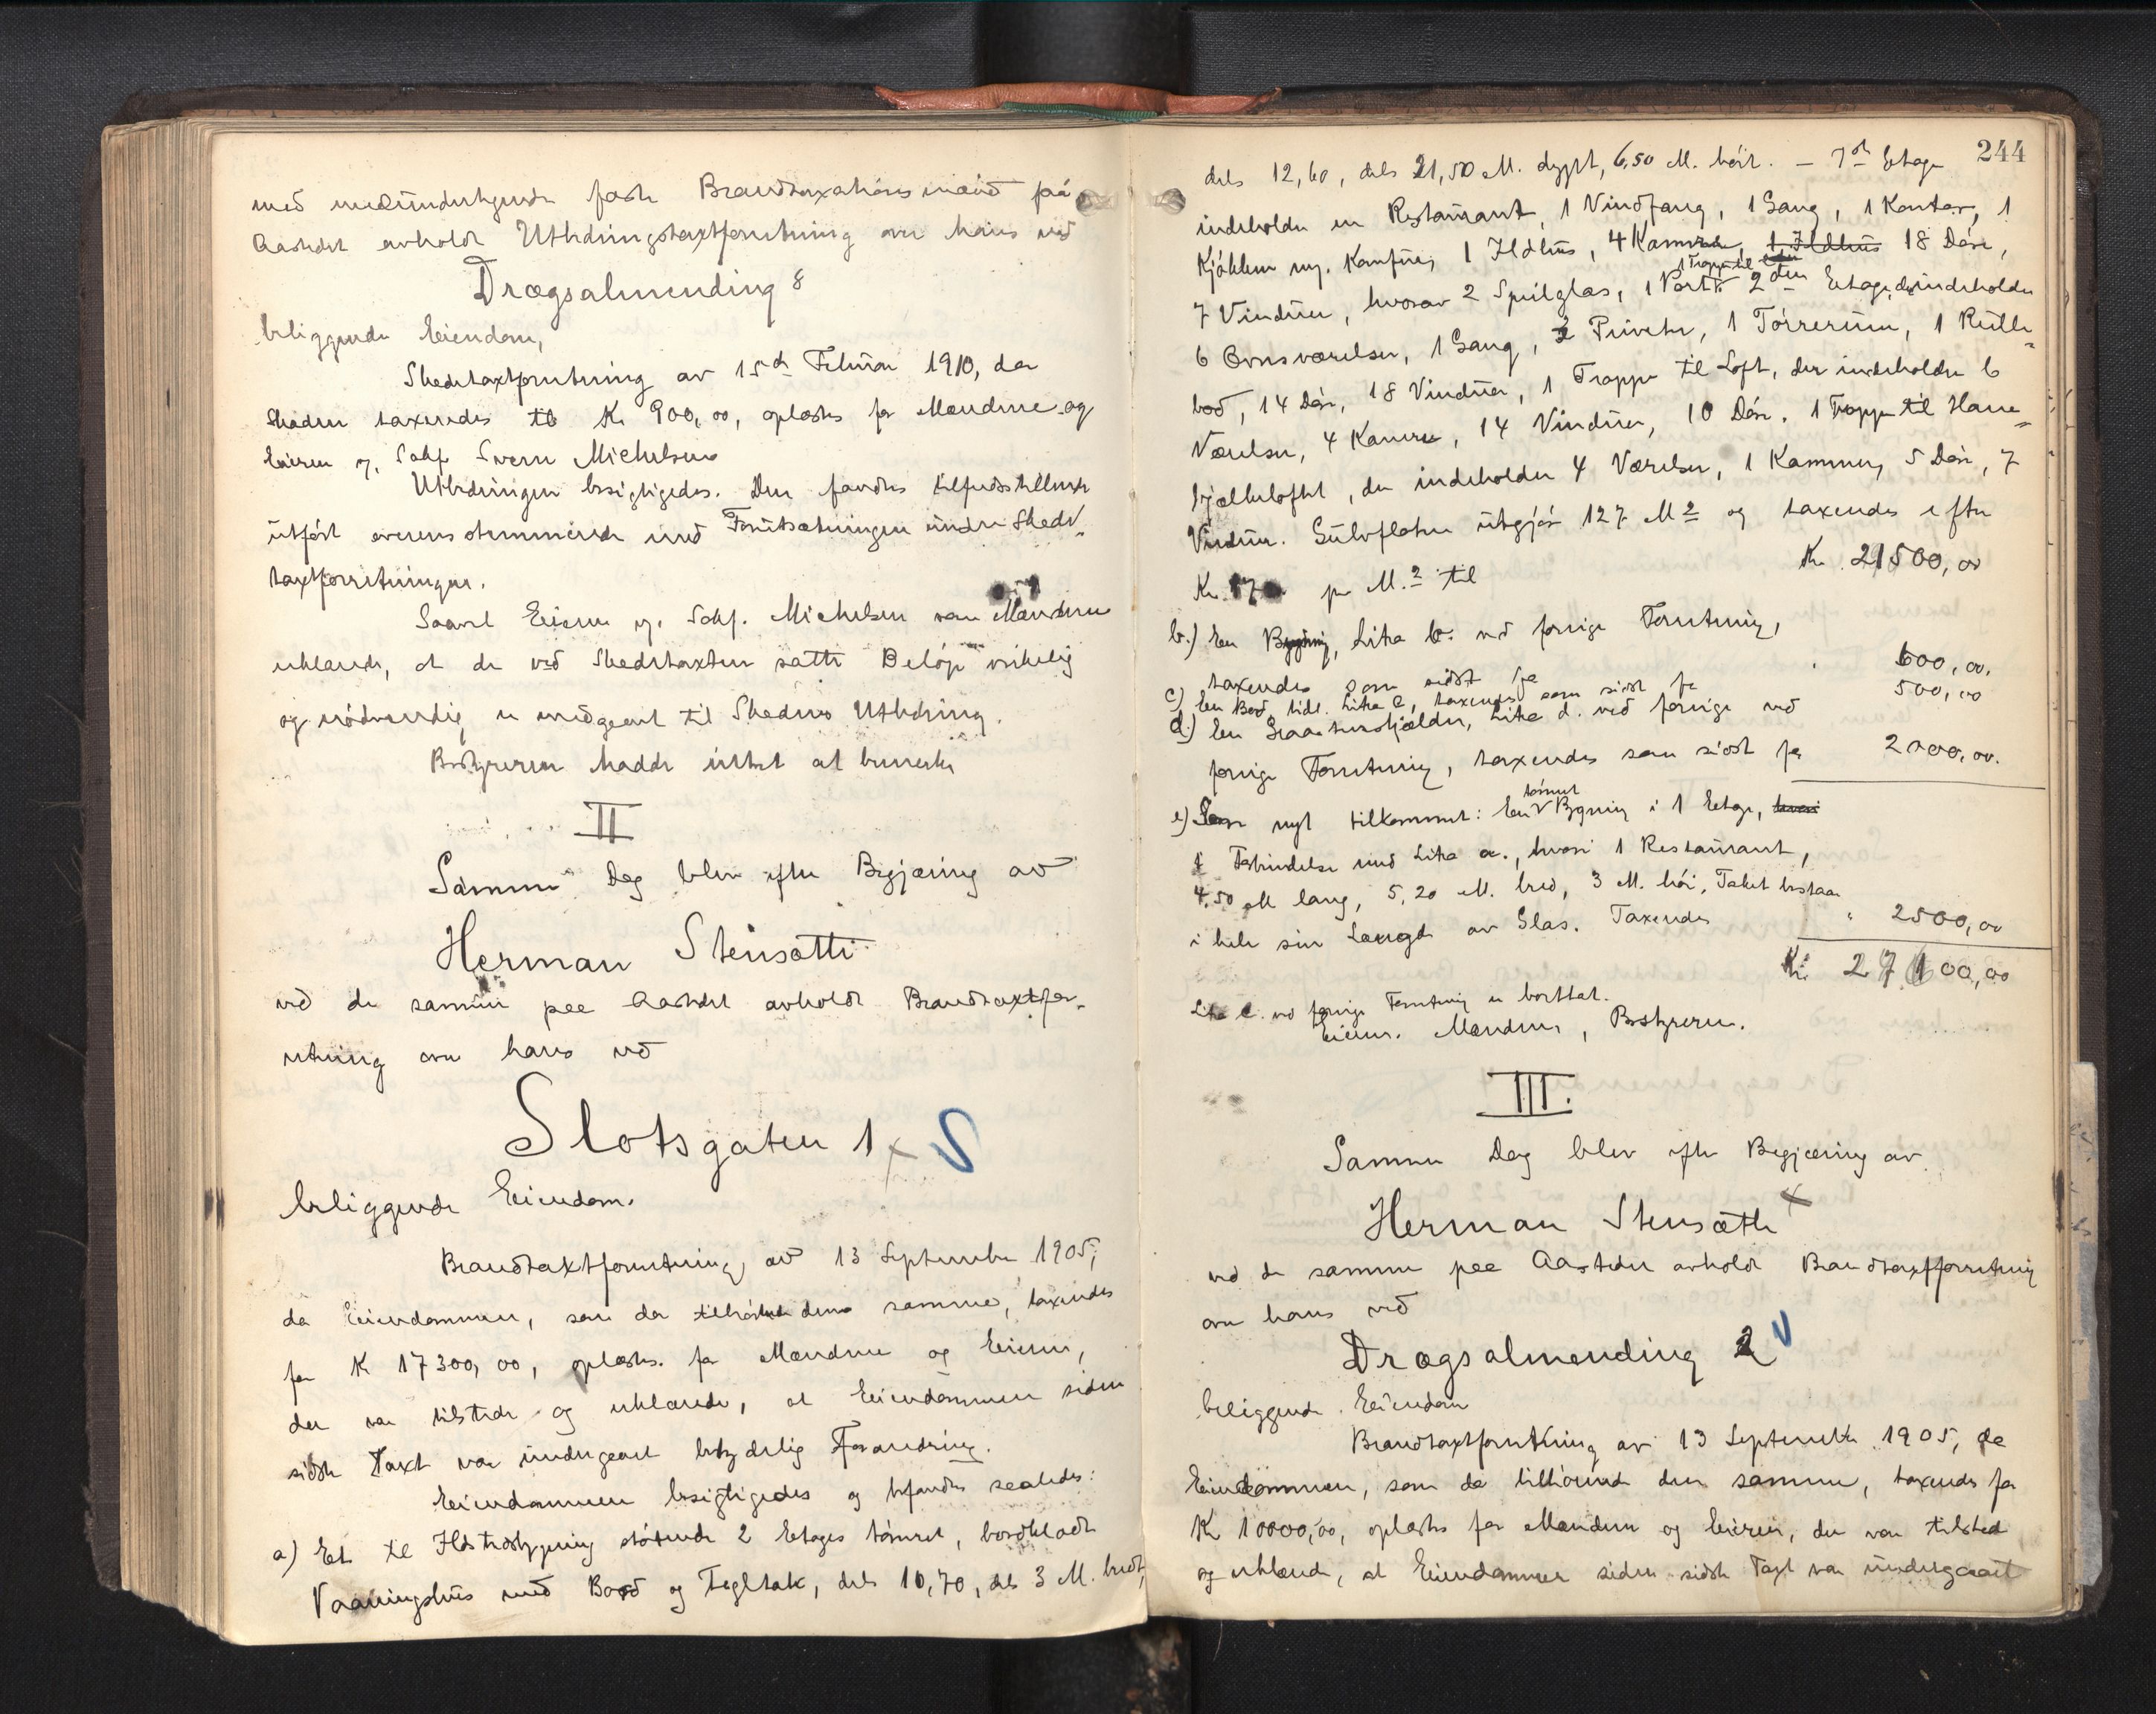 med medundertegnede faste Brandtaxationsmænd på
Aastedet avholdt Utbedringstaxtforretning over hans ved
Drægsalmending 8
beliggende Eiendom,
Skadetaxtforretning av 15de Februar 1910, da
Skaden taxeredes til Kr. 900,00, oplæstes for Mændene og
Eieren
Michelsen
Utbedringen besigtigedes. Den fandtes tilfredsstillende
utført overensstemmende med Forutsætningen under Skade-
taxtforretningen.
Saavel Eieren Michelsen som Mændene
erklærede, at de ved Skadetaxten satte Beløp virkelig
og nødvendig er medgaaet til Skadens Utbedring.
Bestyreren hadde intet at bemerke
II
Samme Dag blev efter Begjæring av
Herman Stensætte
ved de samme paa Aastedet avholdt Brandtaxtfor-
retning over hans ved
Slotsgaten 1
beliggende Eiendom.
Brandtaxtforretning av 13 September 1905,
da Eiendommen, som da tilhørte den samme, taxeredes
for K 17300,00, oplæstes for Mændene og Eieren,
der var tilstede og erklærede, at Eiendommen siden
sidste Taxt var undergaaet betydelig Forandring.
Eiendommen besigtigedes og befandtes saaledes:
a) Et til Ildstedsbygning støtende 2 Etages tømret, bordklædt
Vaaningshus med Bord og Tegltak, dels 10,70, dels 3 M. bredt,
244
dels 12,60, dels 21,50 M. dypt, 6,50 M. høit. – 1ste Etage
indeholder en Restaurant, 1 Vindfang, 1 Gang, 1 Kontor, 1
Kjøkken m. Komfur, 1 Ildhus, 4 Kamre, 1 Ildhus 18 Døre,
1 Trappe til
7 Vinduer, hvorav 2 Speilglas, 1 Port. 2den Etage, der indeholder
6 Ovnsværelser, 1 Gang, 2 Priveter, 1 Tørrerum, 1 Rulle-
bod, 14 Døre, 18 Vinduer, 1 Trappe til Loft, der indeholder 6
Værelser, 4 Kamre, 14 Vinduer, 10 Døre. 1 Trappe til Hane-
bjælkeloftet, der indeholder 4 Værelser, 1 Kammer, 5 Døre, 7
Vinduer. Gulvflaten utgjør 127 M2 og taxeredes efter
Kr. 170 pr M.2 til Kr. 21500,00
b.) En Bygning, Litra b. ved forrige Forretning,
taxeredes som sidst for 600,00.
c) En Bod, tidl. Litra C, taxeredes som sidst for 500,00
d.) En Graastenskjælder, Litra d. ved forrige ved
forrige Forretning, taxeredes som sidst for 2000,00.
tømret
e) Som nyt tilkommet: En Bygning i 1 Etage, hvori
i Forbindelse med Litra a., hvori 1 Restaurant,
4,50 M lang, 5,20 M. bred, 3 M. høi, Taket bestaar
i hele sin Længde av Glas. Taxeredes " 2500,00
Kr. 27100,00
Litra C. ved forrige Forretning er borttat.
Eieren. Mændene, Bestyreren.
III.
Samme Dag blev efter Begjæring av
Herman Stensætte
ved de samme paa Aastedet avholdt Brandtaxtforretning
over hans ved
Drægsalmending 2
beliggende Eiendom
Brandtaxtforretning av 13 September 1905, da
Eiendommen, som da tilhørende den samme, taxeredes for
Kr 10000,00, oplæstes for Mændene og Eieren, der var tilsted
og erklærede, at Eiendommen siden sidste Taxt var undergaaet